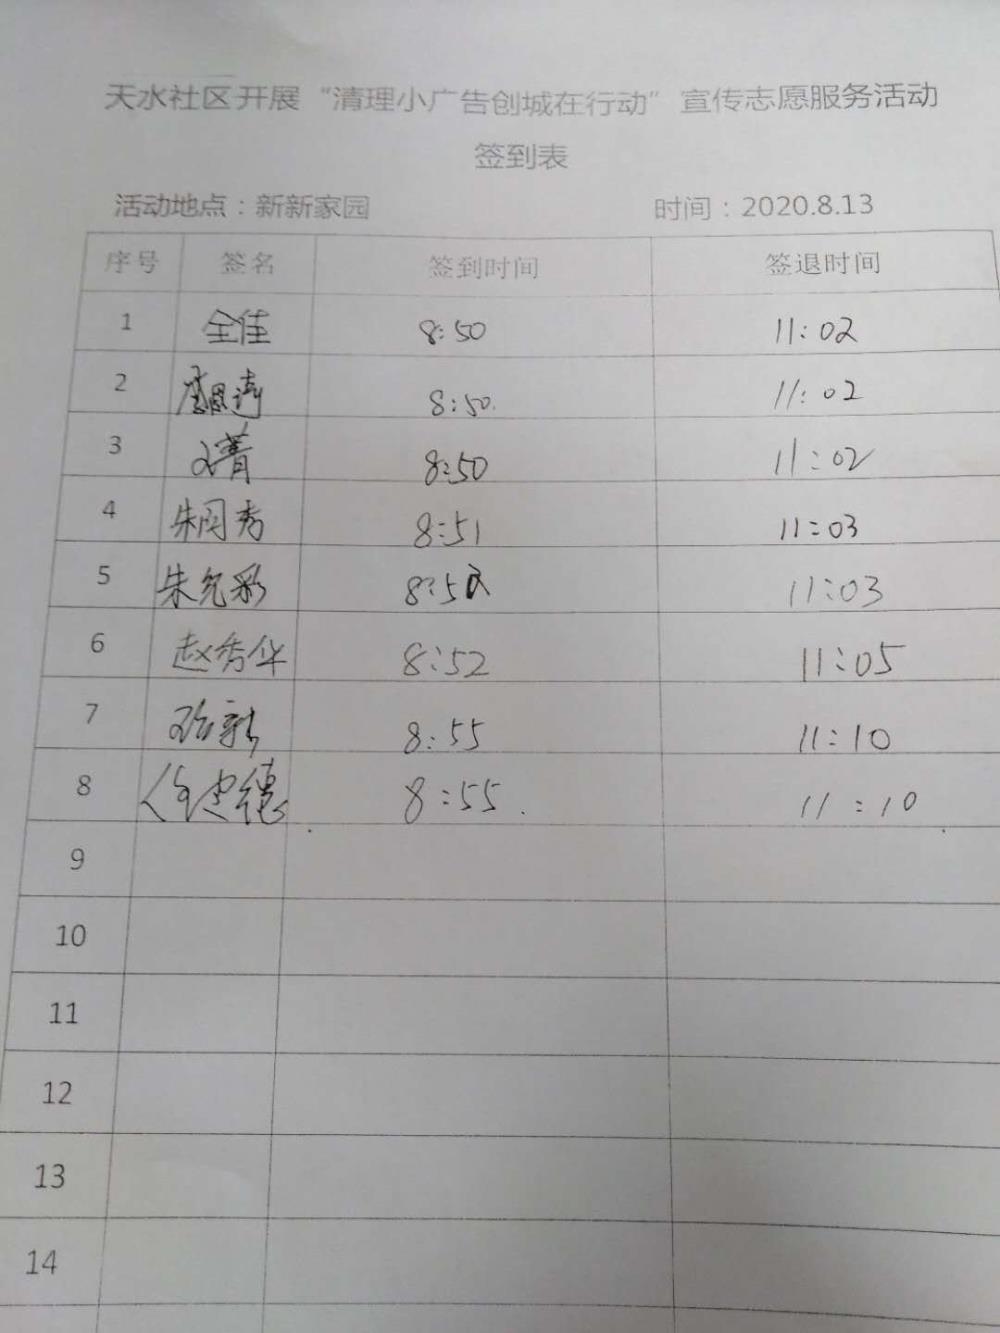 天水社区开展“清理小广告创城在行动”宣传志愿服务活动
签到表
活动地点：新新家园 时间：2020.8.13
序号 签名 签到时间 签退时间
1 全佳 8:50 11:02
2 8:50. 11:02
3 8:50 11:02
4 朱闰秀 8:51 11:03
5 朱允彩 8:52 11:03
6 赵秀华 8:52 11:05
7 8:55 11:10
8 8:55. 11:10
9
10
11
12
13
14